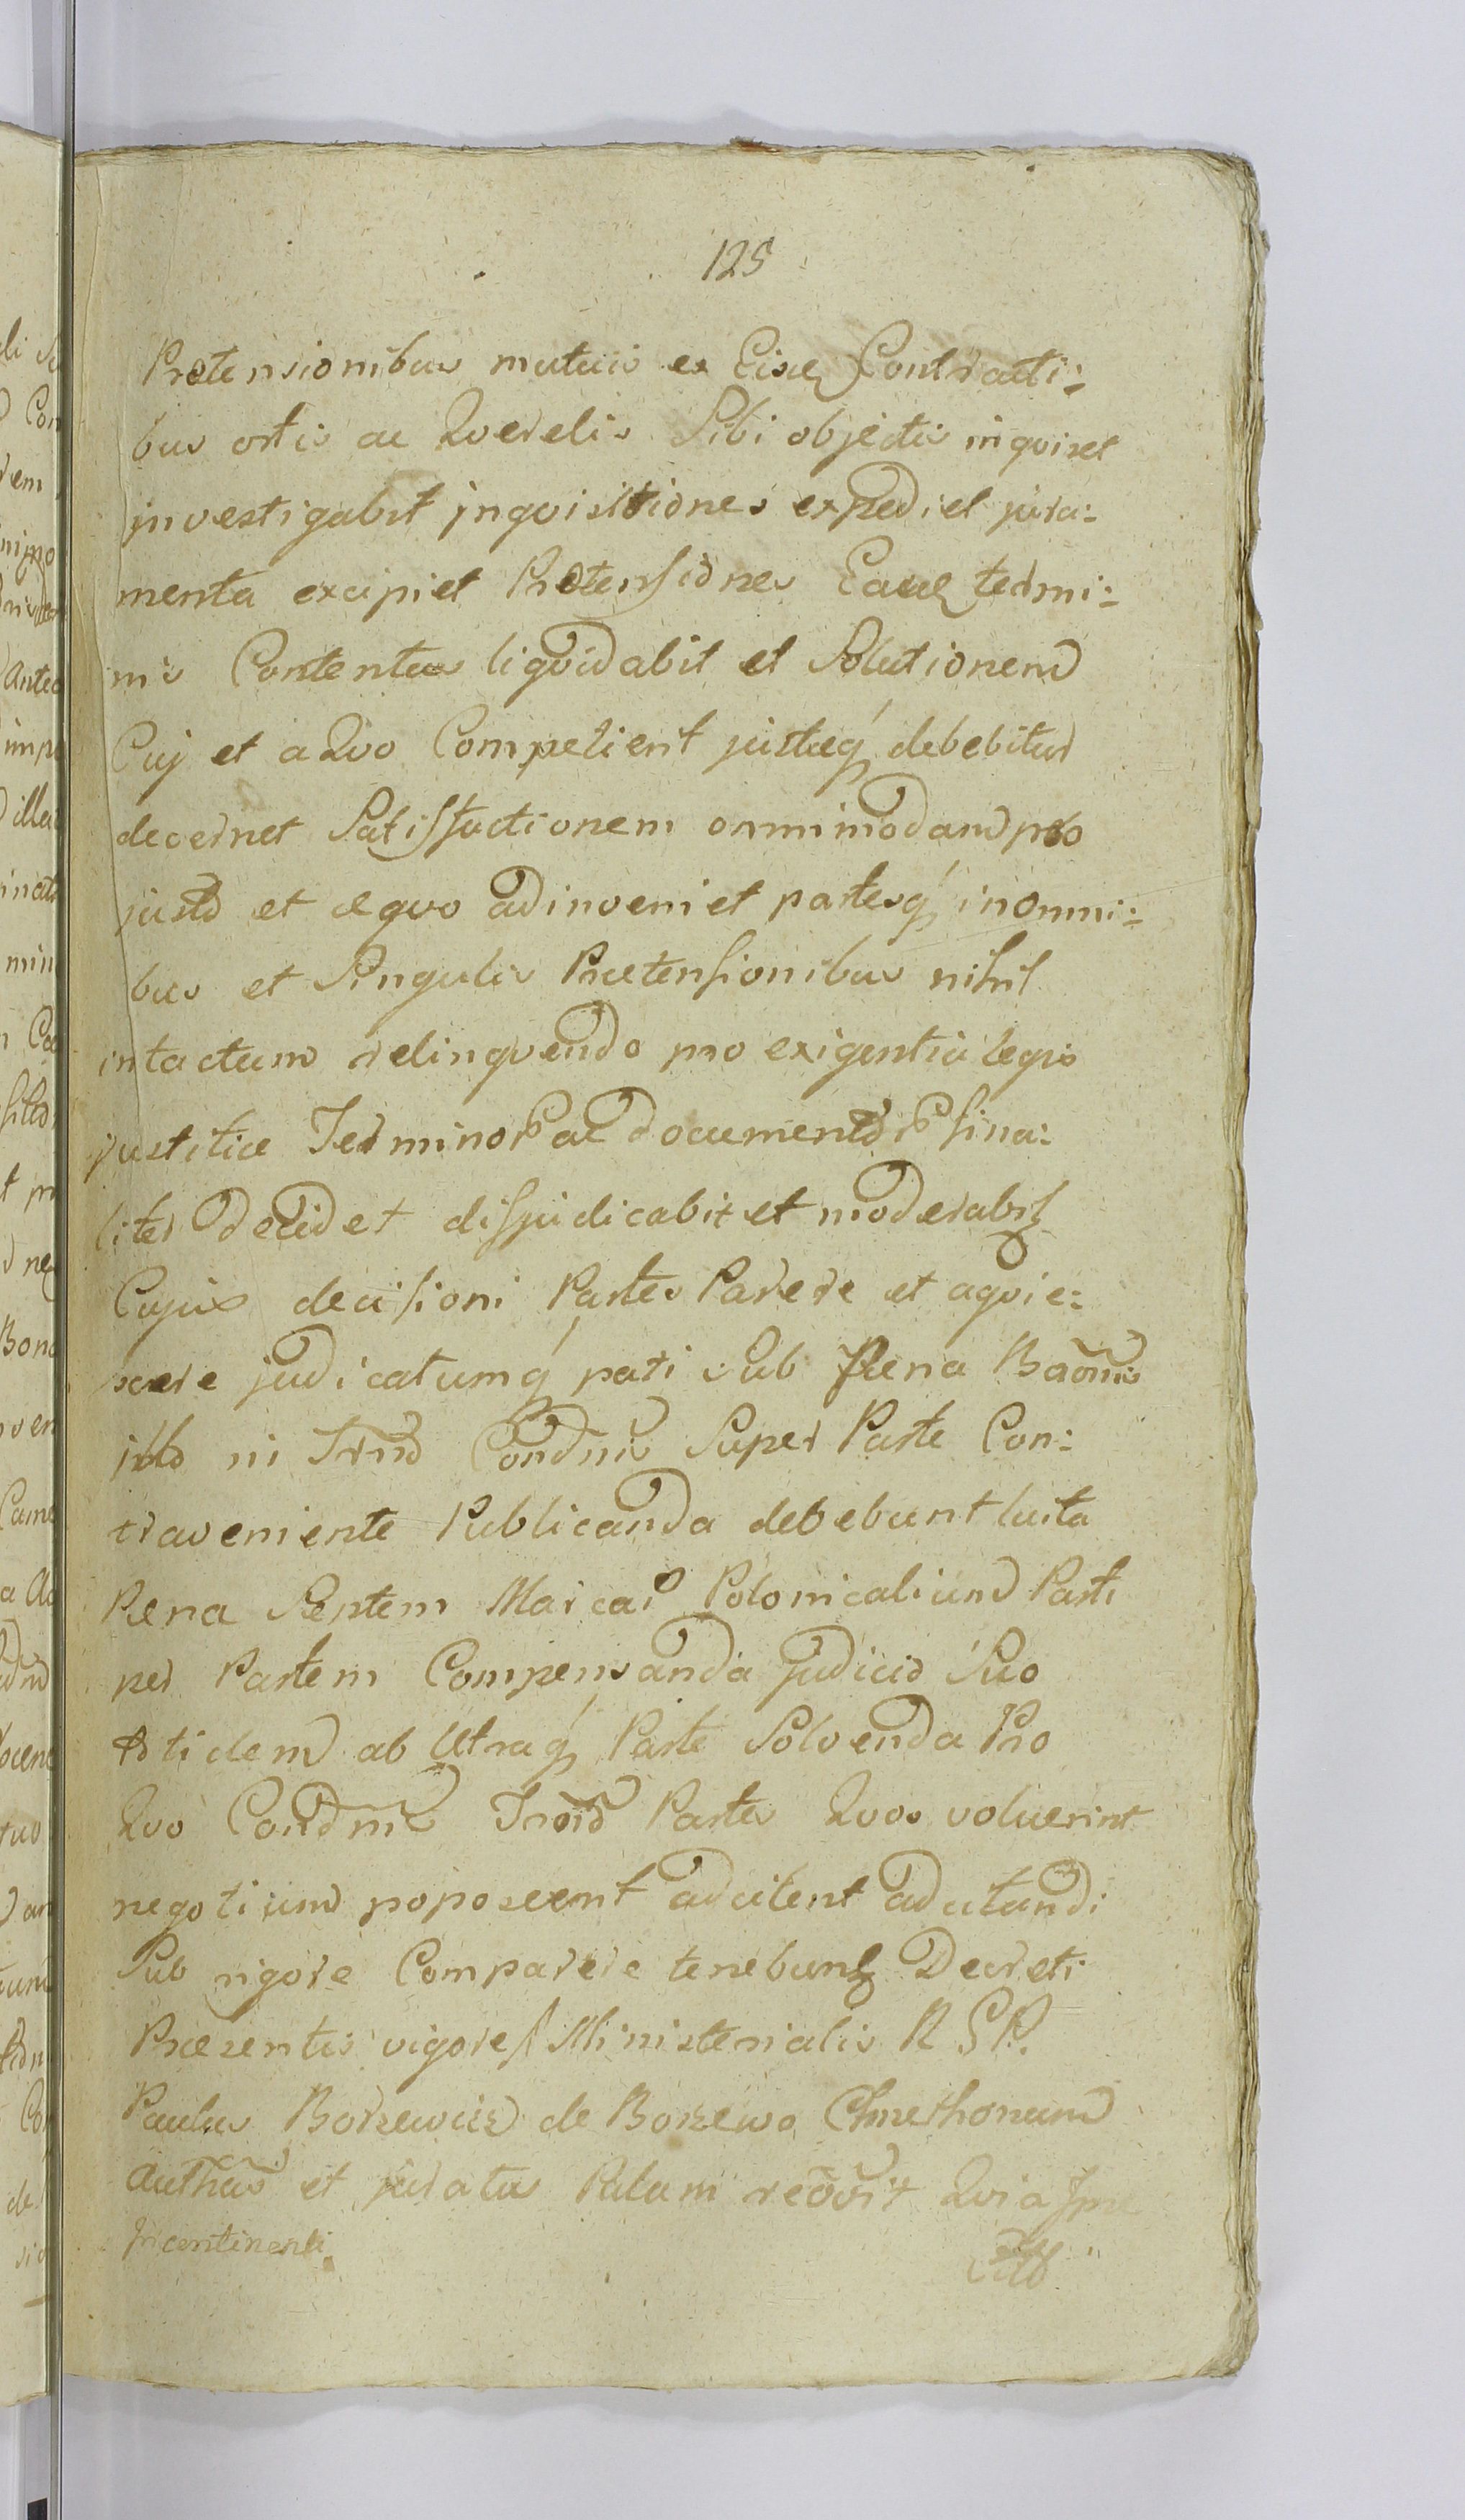 125
Pretensionibus mutuis ex Eisdem Contracti:
bus ortis ac Qverelis Sibi objectis inqviret
investigabit inqvisitiones expediet jura:
menta excipiet Pretensiones Easdem termi:
nis Contentas liqvidabit et Solutionem
Cuj et a Qvo Competierit justeq, debebitur
decernet Satisfactionem omnimodam pro
justo et æqvo adinveniet partesq, in omni:
bus et Singulis Prætensionibus nihil
intactum relinqvendo pro exigentia legis
justitiæ Terminor ac documentor fina:
liter decidet disjudicabit et moderabit
Cujus decisioni Partes Parere et aqvie:
scere judicatumq, pati Sub Pæna Baõnis
in Condnis Super Parte Con:
traveniente Publicanda debebunt luita
Pæna Septem Marcar Polonicalium Parti
per Partem Compensanda judicio Suo
totidem ab Utraq, Parte Solvenda Pro
Qvo Condnis Partes Qvos voluerint
negotium poposcerit adcitent adcitandi
Sub rigore Comparere tenebunt Decreti
Præsentis vigore Ministerialis R G P.
Paulus Borzewicz de Borzewo Chmethonum
Authus et juratus Palam recõvit Qvia
Incontinenti